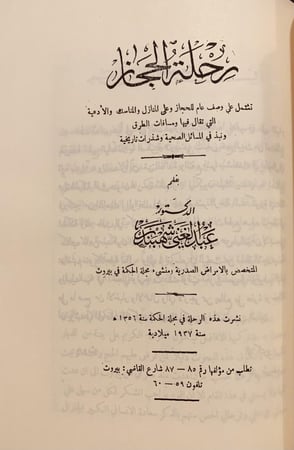 رحلة الحجاز
تشتمل على وصف عام للحجاز وعلى المنازل والمناسك والأدعية
التي تقال فيها ومسافات الطرق
ونبذ في المسائل الصحية وشذرات تاريخية
بقلم
الدكتور
عبد الغني شهبندر
المتخصص بالامراض الصدرية ومنشىء مجلة الحكمة في بيروت
نشرت هذه الرحلة في مجلة الحكمة سنة ١٣٥٦ ھ
سنة ١٩٣٧ ميلادية
تطلب من مؤلفها رقم ٨٥ — ٨٧ شارع القاضي : بيروت
تلفون ٥٩ — ٦٠